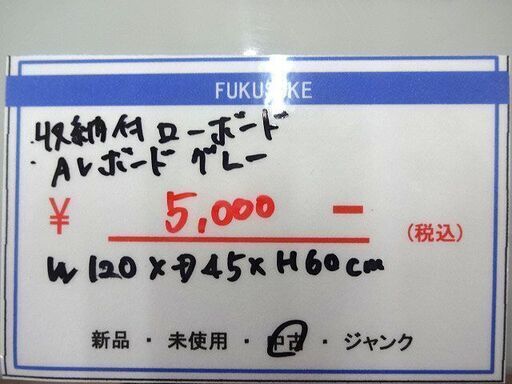 FUKUSUKE
収納付ローボード
・AVボード グレー
¥ 5,000 ー (税込)
W120×D45×H60cm
新品・未使用・中古・ジャンク